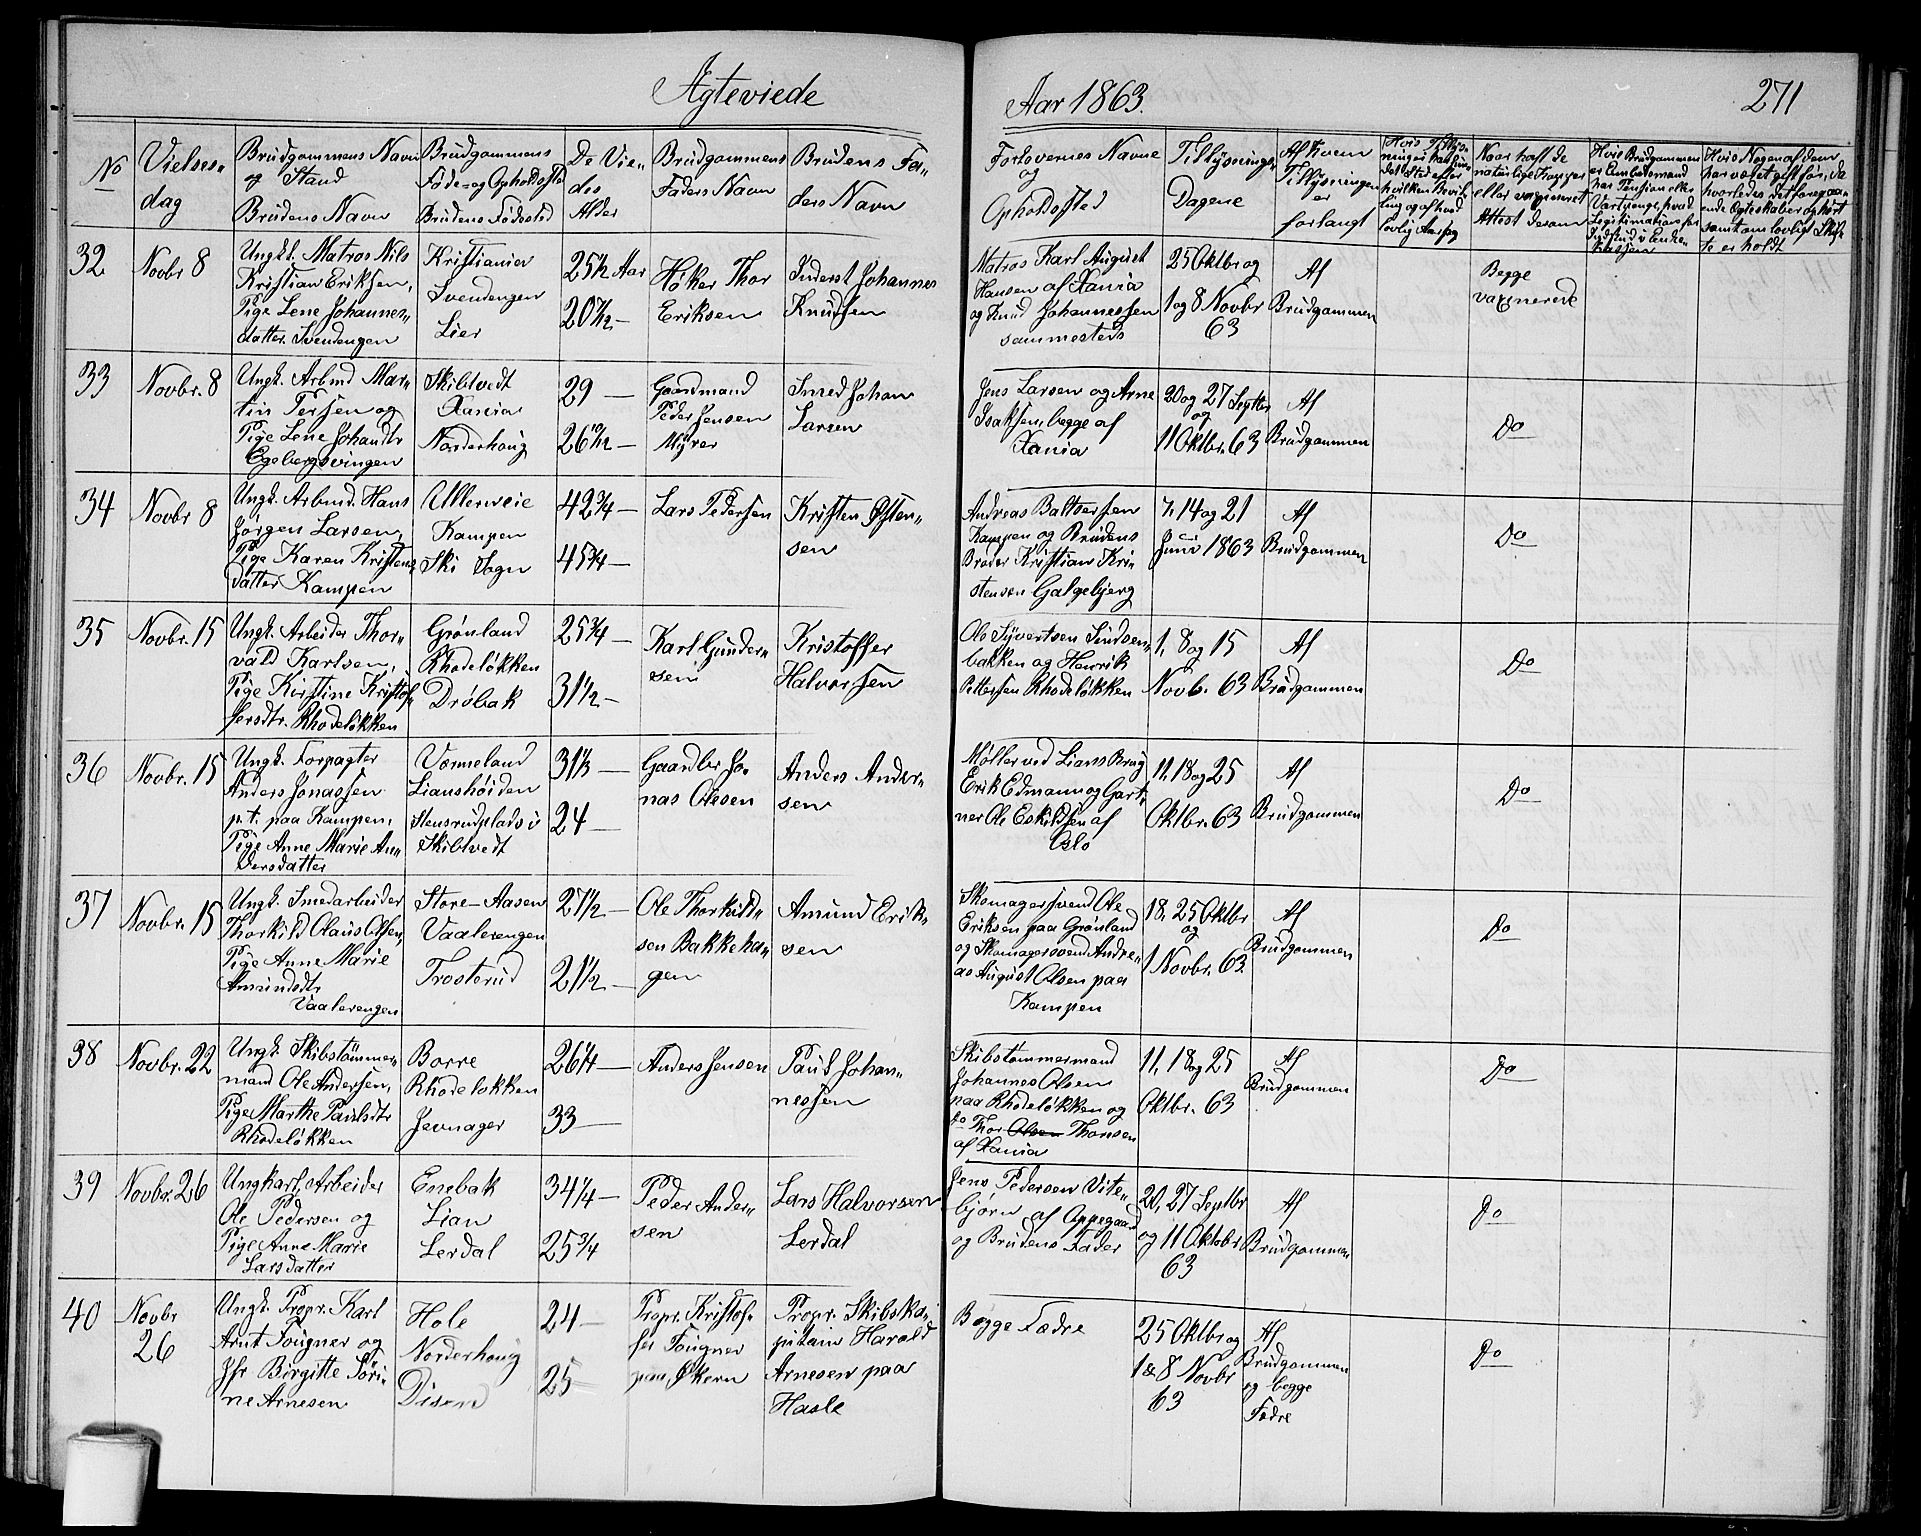 Ægteviede
Aar 1863.
271
No
Vielses-
dag
Brudgommens Navn
og Stand
Brudens Navn
Brudgommens
Føde- og Opholdssted
Brudens Fødested
De Vie-
des
Alder
Brudgommens
Faders Navn
Brudens Fa-
ders Navn
Forlovernes Navne
og
Opholdssted
Tillysnings-
Dagene
Af hvem
Tillysningen
er
forlangt
Naar havt de
naturlige Kopper
eller vaxineret
Attest derom
32
Novbr 8
Ungk. Matros Nils
Kristian Eriksen,
Pige Lene Johannes-
datter. Svendengen
Kristiania
Svendengen
Lier
25 1/2 Aar
20 7/12 —
Høker Thor
Eriksen
Inderst Johannes
Knudsen
Matros Karl August
Hansen af Xania
og Knud Johannessen
sammesteds
25 Oktbr og
1 og 8 Novbr
63
Af
Brudgommen
Begge
vaxinerede
33
Novbr. 8
Ungk. Arbmd Mar-
tin Persen og
Pige Lene Johansdtr
Egebergsvingen
Skibtvedt
Xania
Norderhoug
29 —
26 10/12 —
Gaardmand
Peder Jensen
Myrer
Smed Johan
Larsen
Jens Larsen og Arne
Isaksen, begge af
Xania
20 og 27 Septbr
og
11 Oktbr. 63
Af
Brudgommen
Do
34
Novbr 8
Ungk. Arbmd. Hans
Jørgen Larsen,
Pige Karen Kristens-
datter Kampen
Ullerweie
Kampen
Ski Sogn
42 3/4 —
45 3/4 —
Lars Pedersen
Kristen Østen-
sen
Andreas Baltsersen
Kampen og Brudens
Broder Kristian Kri-
stensen Galgebjerg
7, 14 og 21
Juni 1863
Af
Brudgommen
Do
35
Novbr. 15
Ungk. Arbeider Thor-
vald Karlsen,
Pige Kirstine Kristof-
fersdtr. Rhodeløkken
Grønland
Rhodeløkken
Drøbak
25 3/4 —
31 1/2 —
Karl Gunder-
sen
Kristoffer
Halvorsen
Ole Syvertsen Sindsen-
bakken og Henrik
Pettersen Rhodeløkken
1, 8 og 15
Novb. 63
Af
Brudgommen
Do
36
Novbr. 15
Ungk. Forpagter
Anders Jonassen
p. t. paa Kampen,
Pige Anne Marie An-
dersdatter
Vermeland
Lianshøiden
Stensrudplads i
Skibtvedt
31 1/3 —
24 —
Gaardbr Jo-
nas Olesen
Anders Ander-
sen
Møller ved Lians Brug
Erik Edmann og Gart-
ner Ole Eskildsen af
Oslo
11, 18 og 25
Oktbr. 63
Af
Brudgommen
Do
37
Novbr. 15
Ungk. Smedarbeider
Thorkild Olaus Olsen,
Pige Anne Marie
Amundsdtr
Vaalerengen
Store-Aasen
Vaalerengen
Trosterud
27 1/2 —
21 1/2 —
Ole Thorkild-
sen Bakkeha-
gen
Amund Erik-
sen
Skomagersvend Ole
Eriksen paa Grønland
og Skomagersvend Andre-
as August Olsen paa
Kampen
18, 25 Oktbr
og
1 Novbr. 63
Af
Brudgommen
Do
38
Novbr. 22
Ungk. Skibstømmer-
mand Ole Andersen,
Pige Marthe Paulsdtr
Rhodeløkken
Borre
Rhodeløkken
Jevnager
26 1/4 —
33 —
Anders Jensen
Paul Johan-
nessen
Skibstømmermand
Johannes Olsen
paa Rhodeløkken og
do Thor Olsen Thonsen
af Xania
11, 18 og 25
Oktbr. 63
Af
Brudgommen
Do
39
Novbr. 26
Ungkarl, Arbeider
Ole Pedersen og
Pige Anne Marie
Larsdatter
Enebak
Lian
Lerdal
34 1/4 —
25 3/4
Peder Ander-
sen
Lars Halvorsen
Lerdal
Jens Pedersen Vite-
bjørn af Oppegaard
og Brudens Fader
20, 27 Septbr
og 11 Oktober
63
Af
Brudgommen
Do
40
Novbr
26
Ungk. Propr. Karl
Arnt Fougner og
Jfr Birgitte Søri-
ne Arnesen
Hole
Norderhoug
Disen
24 —
25 —
Propr. Kristof-
fer Fougner
paa Økern
Propr. Skibska-
pitain Harald
Arnesen paa
Hasle
Begge Fædre
25 Oktbr og
1 & 8 Novbr
63
Af
Brudgommen
og begge
Fædre
Do